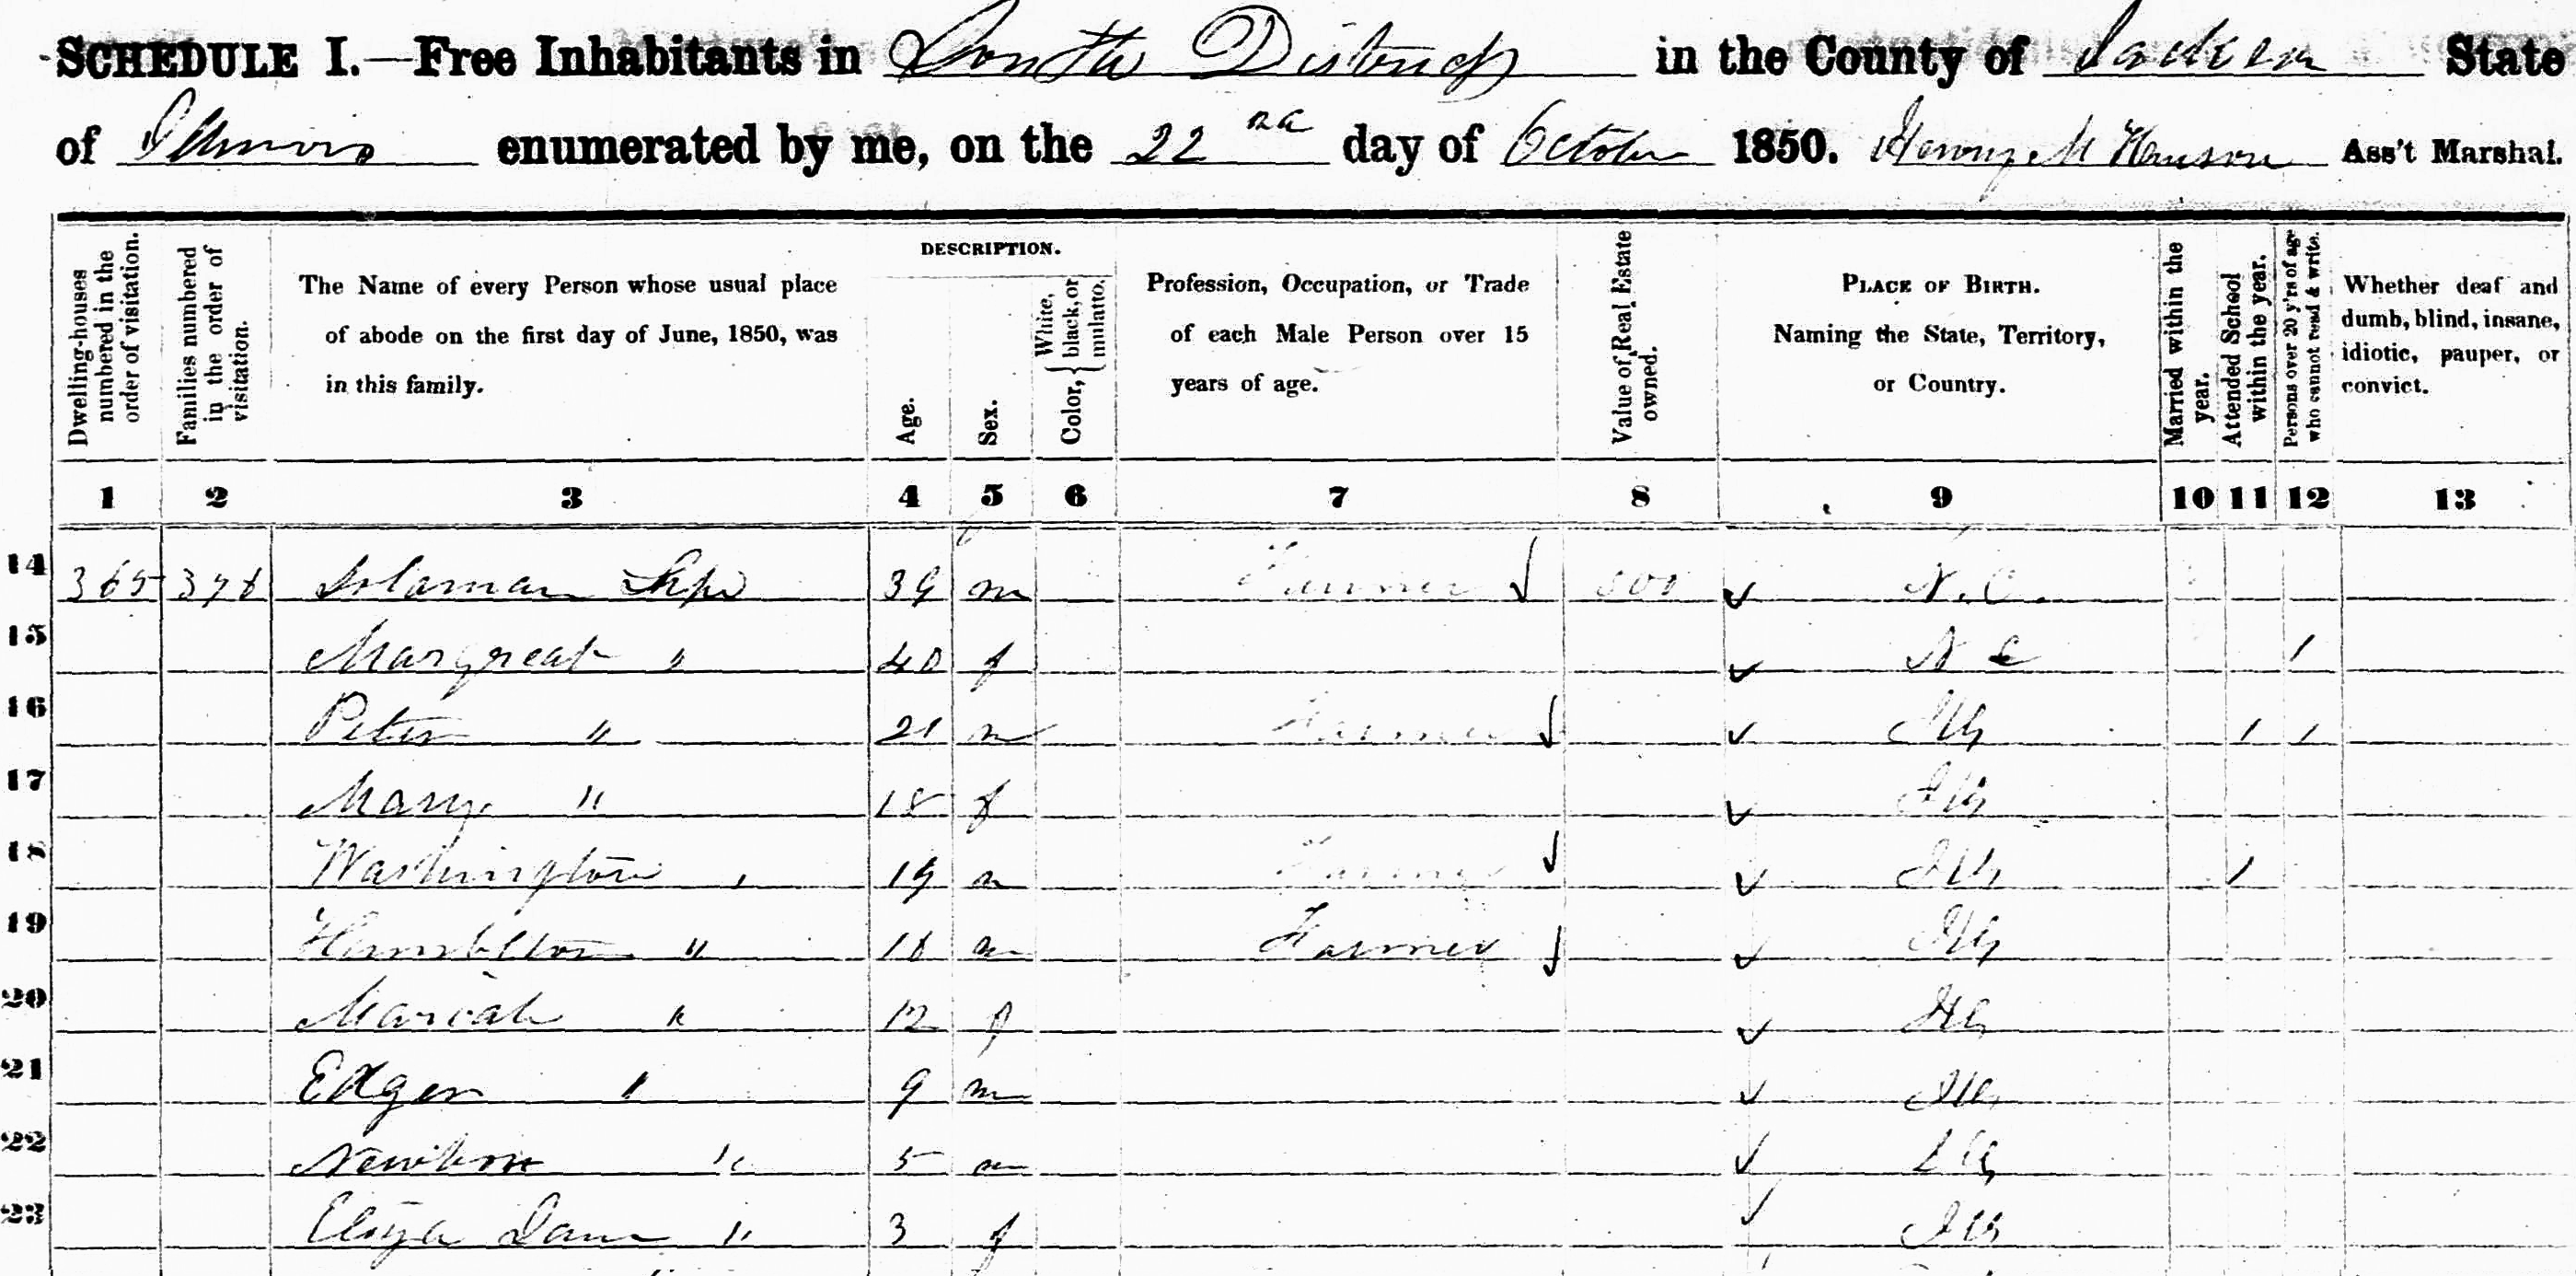 SCHEDULE I.—Free Inhabitants in South District in the County of Jackson State
of Illinois enumerated by me, on the 22nd day of October 1850. Henry M Hanson Ass't Marshal.
Dwelling-houses numbered in the order of visitation.
Families numbered in the order of visitation.
The Name of every Person whose usual place of abode on the first day of June, 1850, was in this family.
DESCRIPTION.
Age.
Sex.
Color, { White, black, or mulatto.
Profession, Occupation, or Trade of each Male Person over 15 years of age.
Value of Real Estate owned.
PLACE OF BIRTH. Naming the State, Territory, or Country.
Married within the year.
Attended School within the year.
Persons over 20 y'rs of age who cannot read & write.
Whether deaf and dumb, blind, insane, idiotic, pauper, or convict.
1 2 3 4 5 6 7 8 9 10 11 12 13
14 365 376 Solaman 39 m Farmer 500 N.C.
15 Margreat " 40 f N C /
16 Peter " 21 m Farmer Ills / /
17 Mary " 18 f Ills
18 Washington " 19 m Farmer Ills /
19 Hambelton " 16 m Farmer Ills
20 Mariah " 12 f Ills
21 Edger " 9 m Ills
22 Newton " 5 m Ills
23 Eliza Jane " 3 f Ills